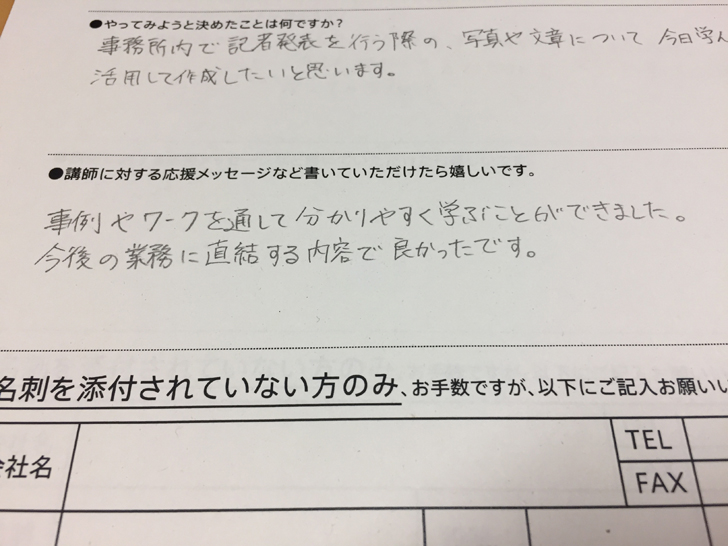 ●やってみようと決めたことは何ですか?
事務所内で記者発表を行う際の、写真や文章について 今日学ん
活用して作成したいと思います。
●講師に対する応援メッセージなど書いていただけたら嬉しいです。
事例やワークを通して分かりやすく学ぶことができました。
今後の業務に直結する内容で良かったです。
名刺を添付されていない方のみ、お手数ですが、以下にご記入お願いい
会社名
TEL
FAX